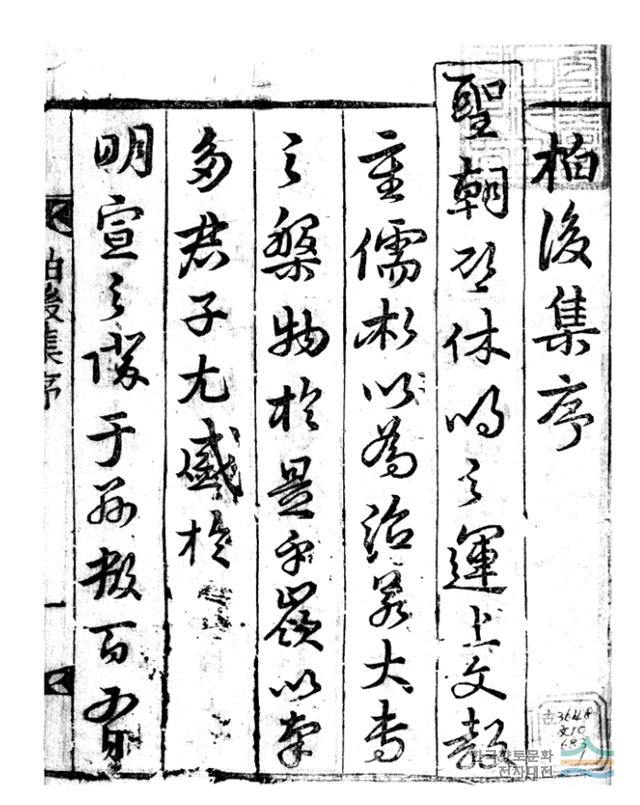 柏後集序
聖朝啓休明之運上文教
重儒術以爲治若大專
之槃物於是乎嶺以南
多君子尤盛於
明宣之際于玆數百有
柏後集序 一
古3648
文10
683
1
한국향토문화
전자대전